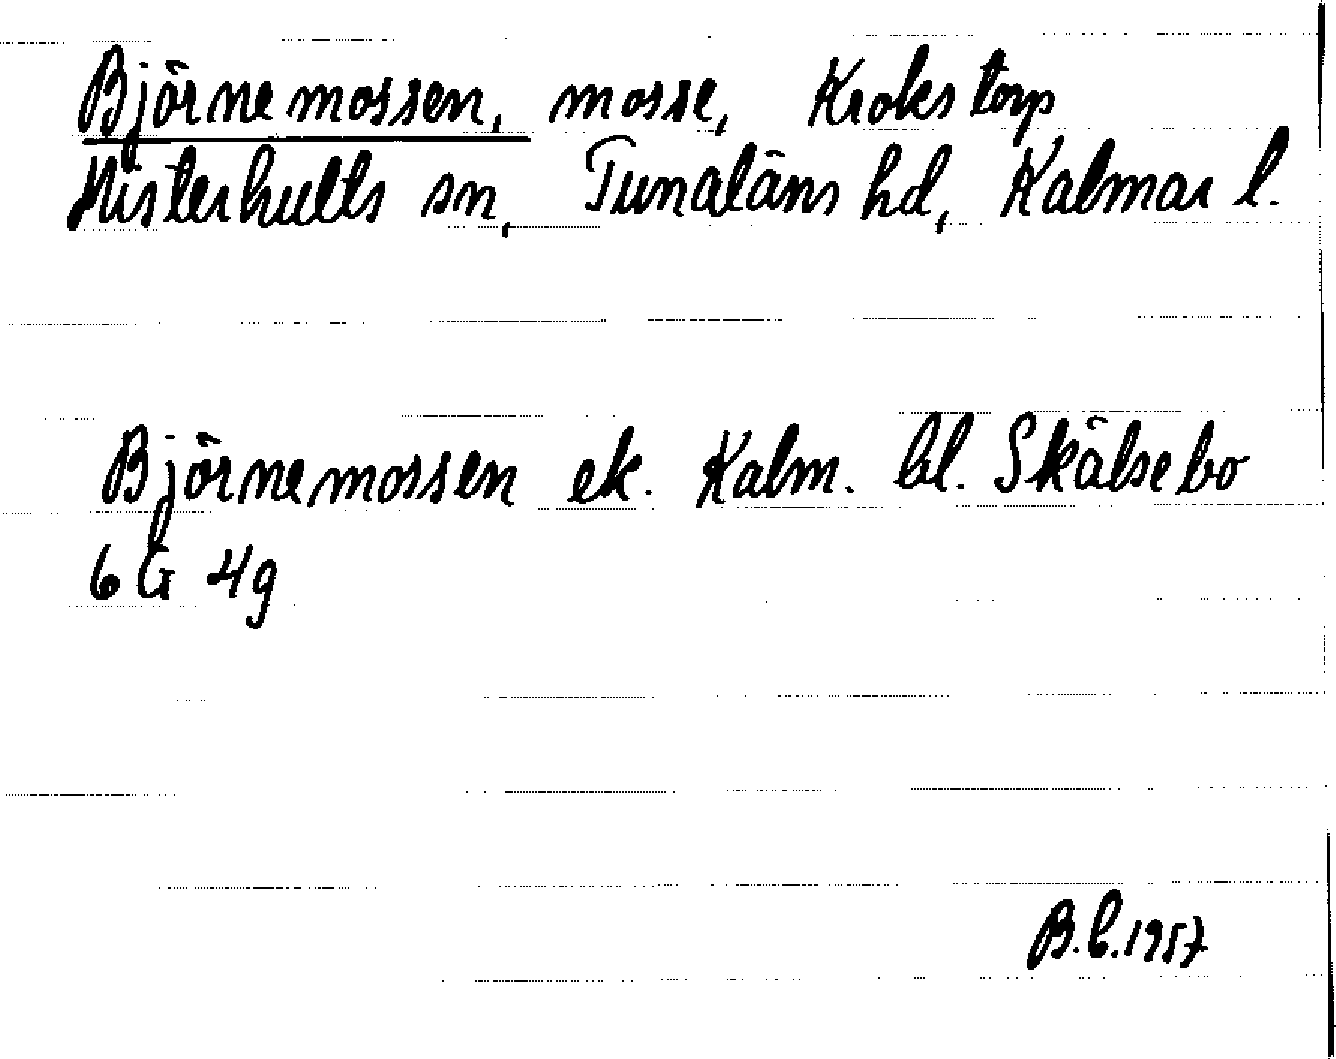 Björnemossen, mosse, Krokstorp
Misterhults sn, Tunaläns hd, Kalmar l.
Björnemossen ek. Kalm. bl. Skälsebo
6 G 4g
B.C.1957